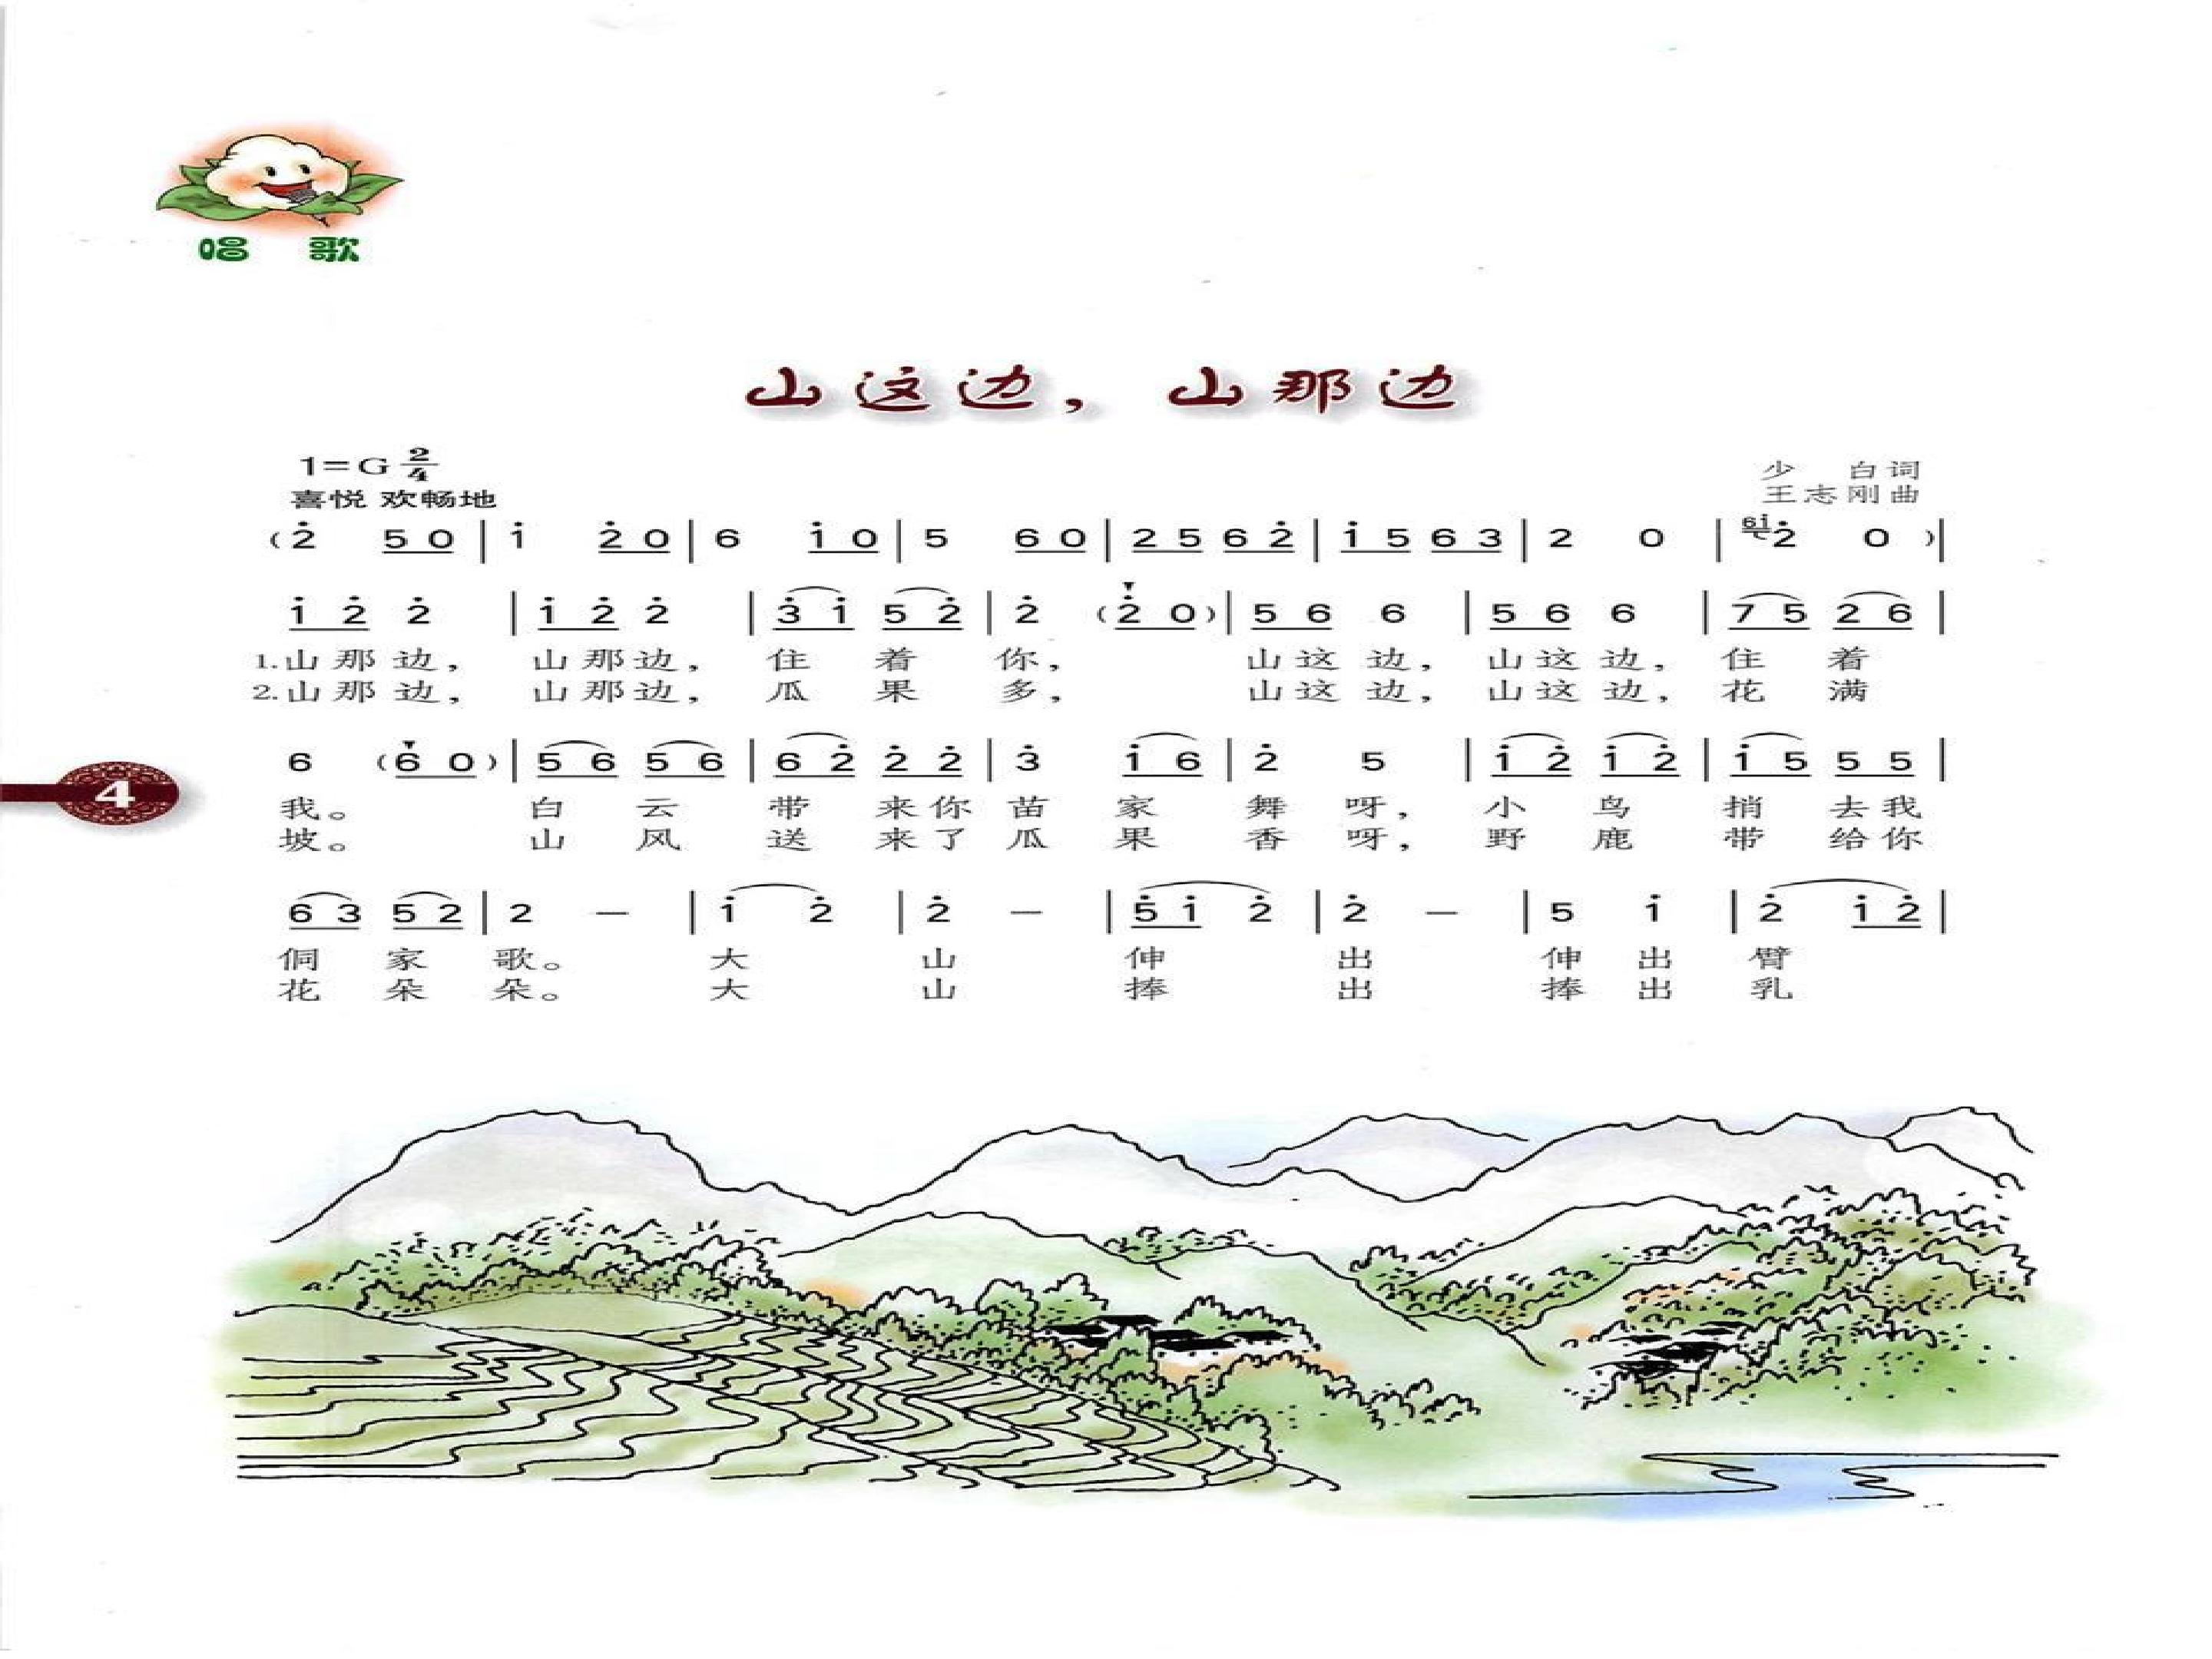 唱 歌
山这边，山那边
1=G 2/4
少 白词
喜悦 欢畅地
王志刚曲
(2̇ 5 0 | 1̇ 2̇ 0 | 6 1̇ 0 | 5 6 0 | 2 5 6 2̇ | 1̇ 5 6 3 | 2 0 | 6 1̇ 2̇ 0 )|
1̇ 2̇ 2̇ | 1̇ 2̇ 2̇ | 3̇ 1̇ 5 2̇ | 2̇ (2̇ 0) | 5 6 6 | 5 6 6 | 7 5 2 6 |
1.山那边， 山那边， 住 着 你， 山这边， 山这边， 住 着
2.山那边， 山那边， 瓜 果 多， 山这边， 山这边， 花 满
6 (6 0) | 5 6 5 6 | 6 2̇ 2̇ 2̇ | 3̇ 1̇ 6 | 2̇ 5 | 1̇ 2̇ 1̇ 2̇ | 1̇ 5 5 5 |
我。 白 云 带 来你 苗 家 舞 呀， 小 鸟 捎 去我
坡。 山 风 送 来了 瓜 果 香 呀， 野 鹿 带 给你
6 3 5 2 | 2 — | 1̇ 2̇ | 2̇ — | 5̇ 1̇ 2̇ | 2̇ — | 5 1̇ | 2̇ 1̇ 2̇ |
侗 家 歌。 大 山 伸 出 伸 出 臂
花 朵 朵。 大 山 捧 出 捧 出 乳
4